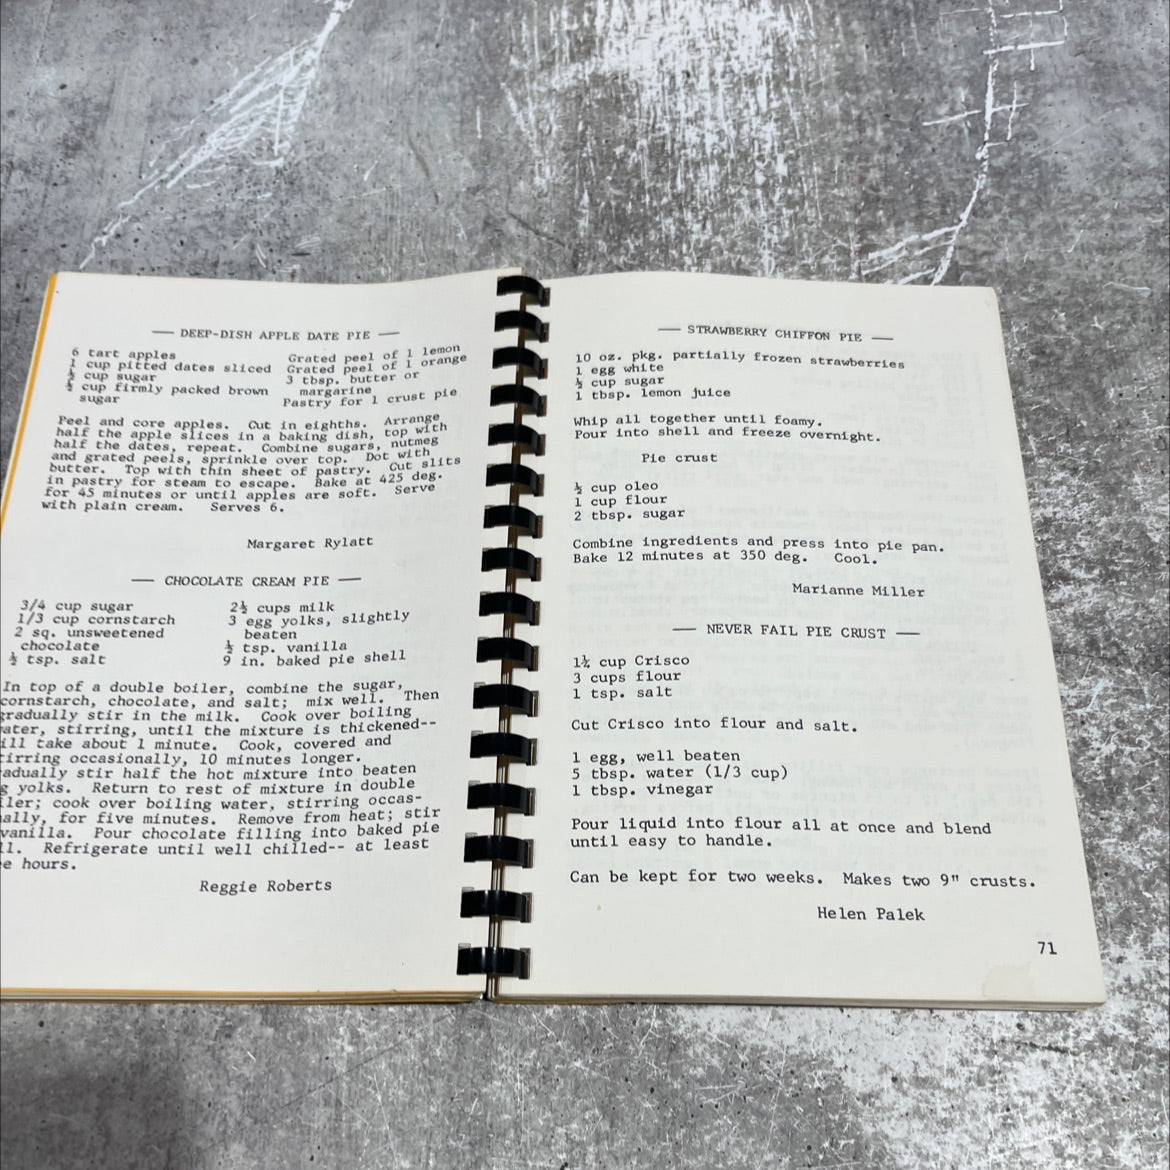 — DEEP-DISH APPLE DATE PIE —
6 tart apples
1 cup pitted dates sliced
½ cup sugar
½ cup firmly packed brown
sugar
Grated peel of 1 lemon
Grated peel of 1 orange
3 tbsp. butter or
margarine
Pastry for 1 crust pie
Peel and core apples. Cut in eighths. Arrange
half the apple slices in a baking dish, top with
half the dates, repeat. Combine sugars, nutmeg
and grated peels, sprinkle over top. Dot with
butter. Top with thin sheet of pastry. Cut slits
in pastry for steam to escape. Bake at 425 deg.
for 45 minutes or until apples are soft. Serve
with plain cream. Serves 6.
Margaret Rylatt
— CHOCOLATE CREAM PIE —
3/4 cup sugar
1/3 cup cornstarch
2 sq. unsweetened
chocolate
½ tsp. salt
2½ cups milk
3 egg yolks, slightly
beaten
½ tsp. vanilla
9 in. baked pie shell
In top of a double boiler, combine the sugar,
cornstarch, chocolate, and salt; mix well. Then
gradually stir in the milk. Cook over boiling
ater, stirring, until the mixture is thickened--
ill take about 1 minute. Cook, covered and
tirring occasionally, 10 minutes longer.
adually stir half the hot mixture into beaten
g yolks. Return to rest of mixture in double
iler; cook over boiling water, stirring occas-
ally, for five minutes. Remove from heat; stir
vanilla. Pour chocolate filling into baked pie
ll. Refrigerate until well chilled-- at least
e hours.
Reggie Roberts
— STRAWBERRY CHIFFON PIE —
10 oz. pkg. partially frozen strawberries
1 egg white
½ cup sugar
1 tbsp. lemon juice
Whip all together until foamy.
Pour into shell and freeze overnight.
Pie crust
½ cup oleo
1 cup flour
2 tbsp. sugar
Combine ingredients and press into pie pan.
Bake 12 minutes at 350 deg. Cool.
Marianne Miller
— NEVER FAIL PIE CRUST —
1¼ cup Crisco
3 cups flour
1 tsp. salt
Cut Crisco into flour and salt.
1 egg, well beaten
5 tbsp. water (1/3 cup)
1 tbsp. vinegar
Pour liquid into flour all at once and blend
until easy to handle.
Can be kept for two weeks. Makes two 9" crusts.
Helen Palek
71